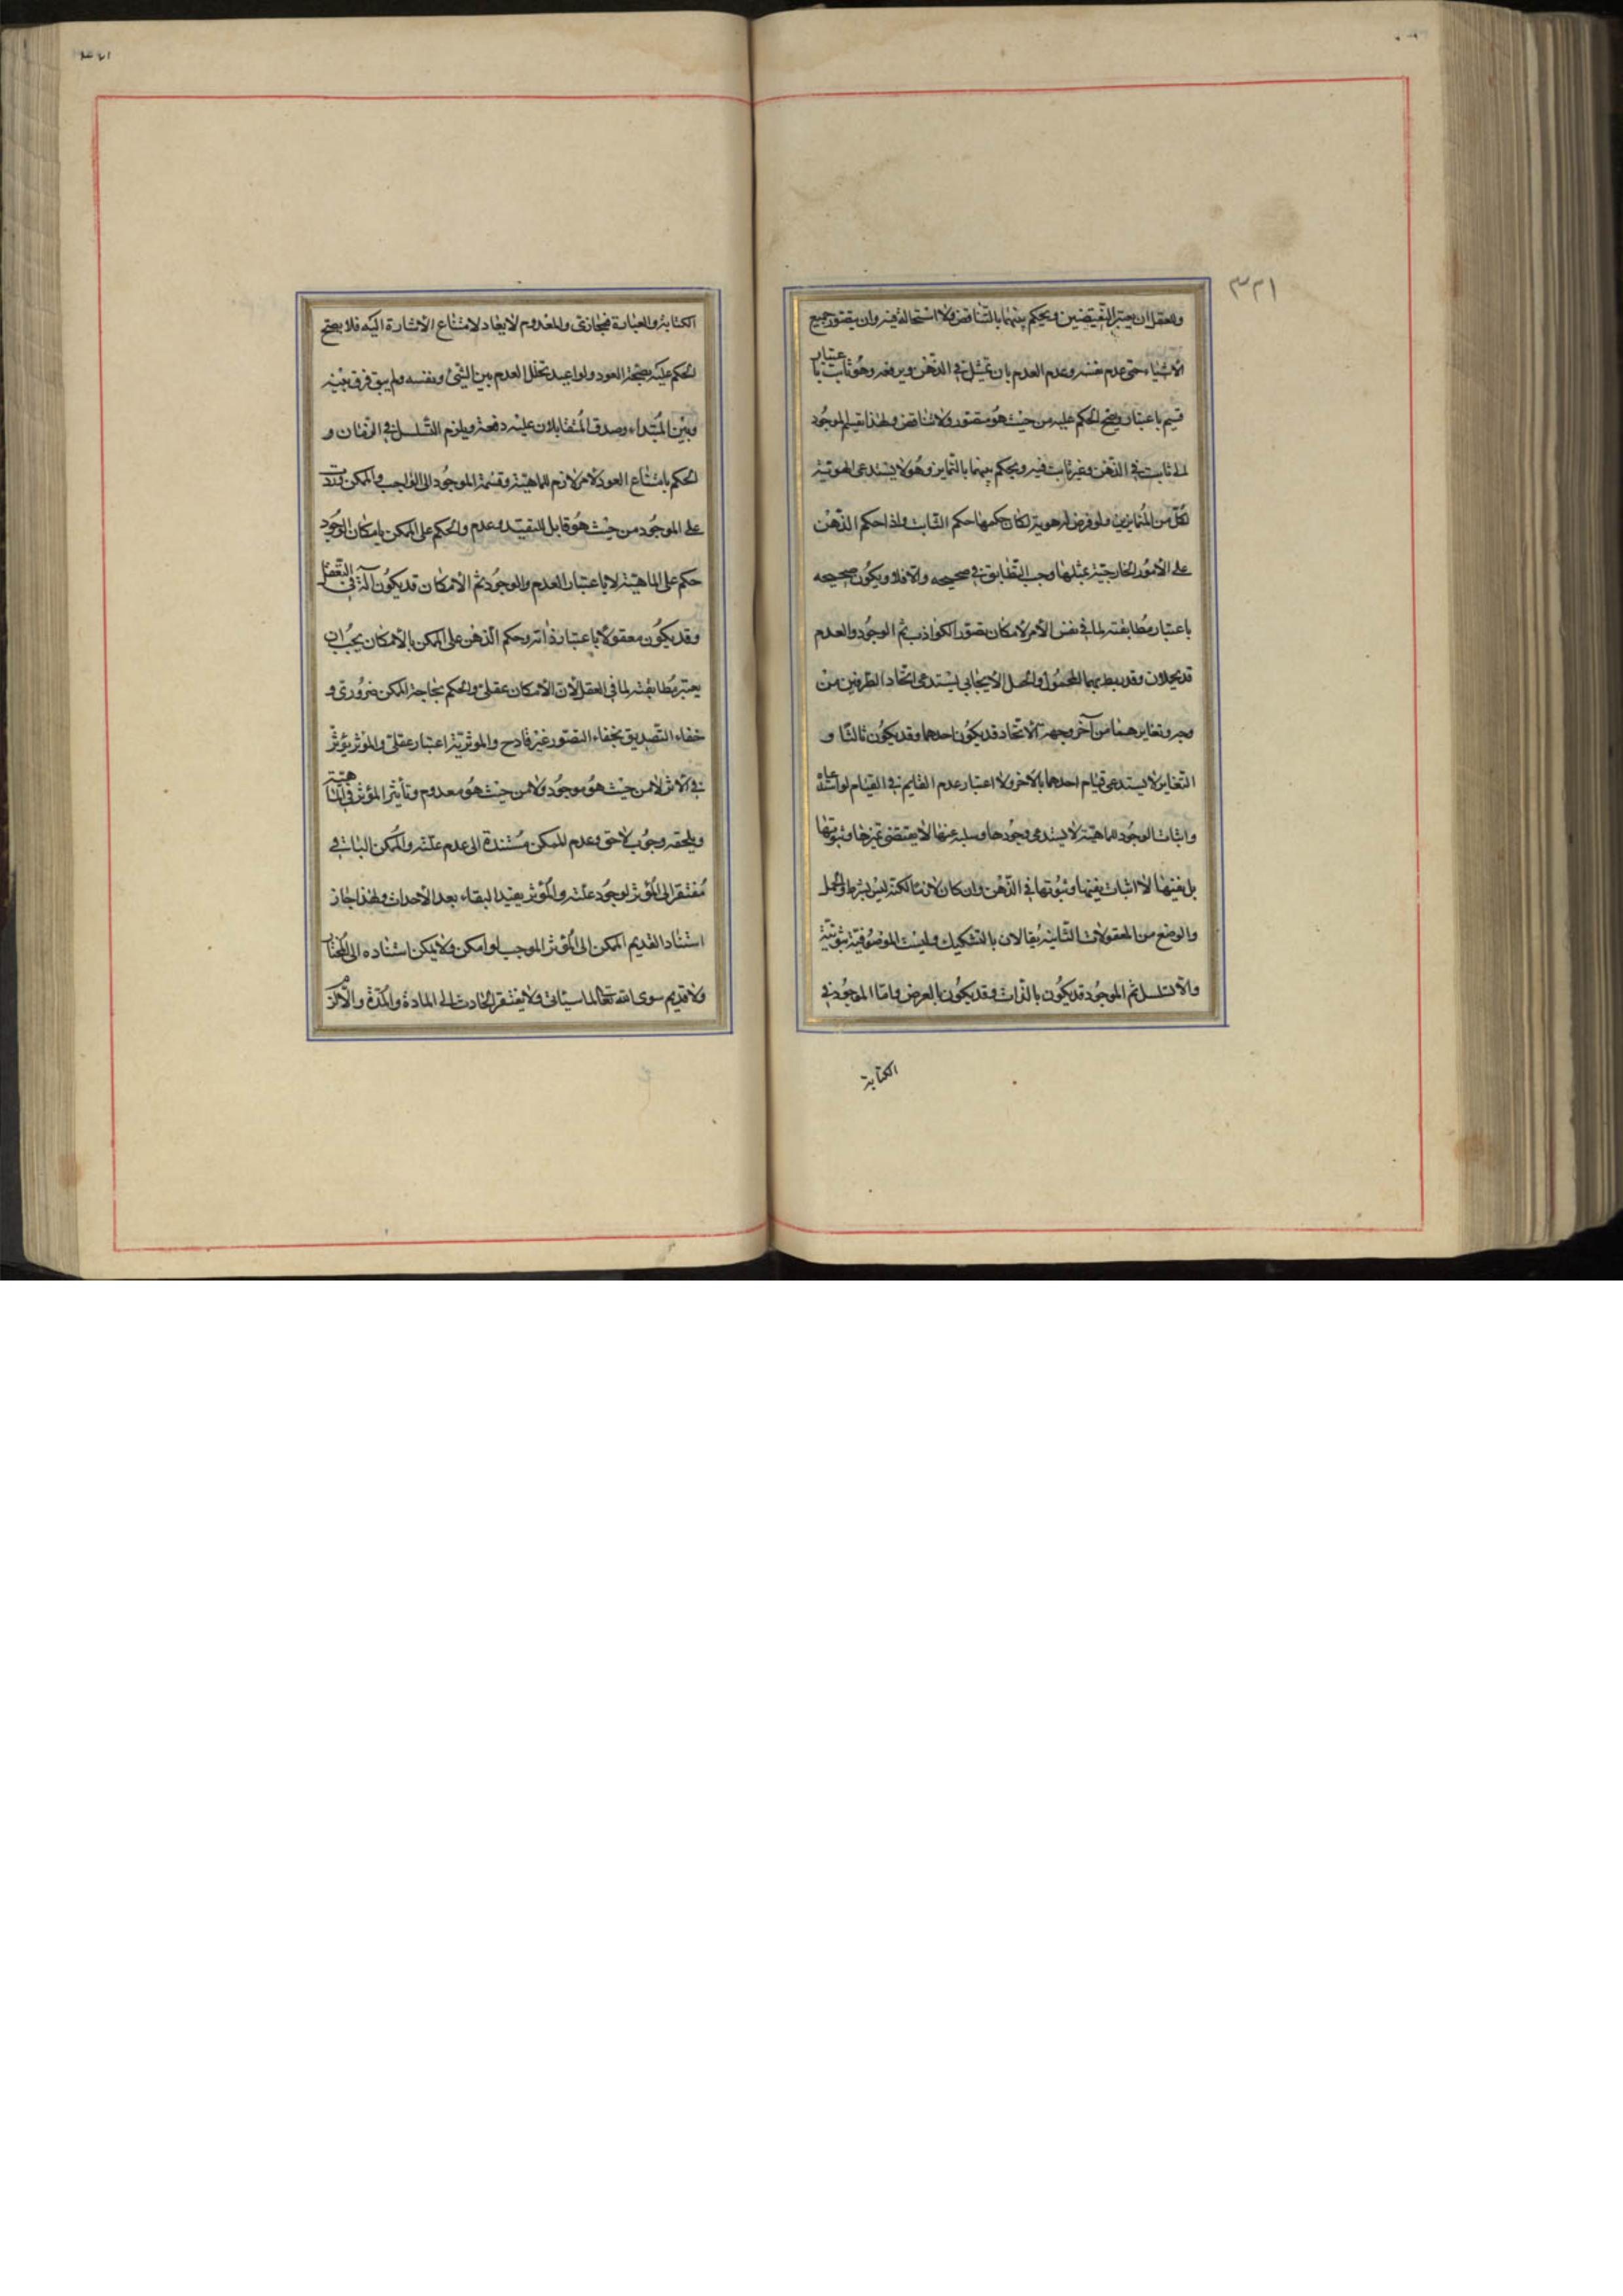 ٣٢١
وللعقل ان يعتبر النقيضين ويحكم بينهما بالتناقض ولا استحالة فيه وان يتصور جميع
الأشياء حتى عدم نفسه وعدم العدم بان يتمثل في الذهن ويرفعه وهو ثابت باعتبار
قسيم باعتبار ويصح الحكم عليه من حيث هو متصور ولا تناقض ولهذا يقسم الموجود
الى ثابت في الذهن وغير ثابت فيه ويحكم بينهما بالتمايز وهو لا يستدعى الهوية
لكل من المتمايزين ولو فرض له هوية لكان حكمها حكم الثابت واذا حكم الذهن
على الأمور الخارجية بمثلها وجب التطابق في صحيحه والا فلا ويكون صحيحه
باعتبار مطابقته لما في نفس الأمر لامكان تصور الكواذب ثم الوجود والعدم
قد يحملان وقد يربط بهما المحمول والحمل الايجابي يستدعى اتحاد الطرفين من
وجه وتغايرهما من آخر وجهة الاتحاد قد يكون احدهما وقد يكون ثالثا و
التغاير لا يستدعى قيام احدهما بالاخر ولا اعتبار عدم القايم في القيام لو استدعاه
واثبات الوجود للماهية لا يستدعى وجودها وسلبه عنها لا يقتضى تميزها وثبوتها
بل نفيها لا اثبات نفيها وثبوتها في الذهن وان كان لازما لكنه ليس بشرط والحمل
والوضع من المعقولات الثانية يقالان بالتشكيك وليست الموصوفية ثبوتية
والا تسلسل ثم الموجود قد يكون بالذات وقد يكون بالعرض واما الموجود في
الكتابة
الكتابة والعبارة فمجازى والمعدوم لا يعاد لامتناع الأشارة اليه فلا يصح
الحكم عليه بصحة العود ولو اعيد تخلل العدم بين الشئ ونفسه ولم يبق فرق بينه
وبين المبتداء وصدق المتقابلان عليه دفعة ويلزم التسلسل في الزمان و
الحكم بامتناع العود لامر لازم للماهية وقسمة الموجود الى الواجب والممكن وردت
على الموجود من حيث هو قابل للتقييد وعدم والحكم على الممكن بامكان الوجود
حكم على الماهية لا باعتبار العدم والوجود ثم الأمكان قد يكون آلة في التعقل
وقد يكون معقولا باعتبار ذاته وحكم الذهن على الممكن بالأمكان يجب ان
يعتبر مطابقته لما في العقل لأن الأمكان عقلى والحكم بحاجة الممكن ضرورى و
خفاء التصديق بخفاء التصور غير قادح والموثرية اعتبار عقلى والموثر يؤثر
في الاثر لا من حيث هو موجود ولا من حيث هو معدوم وتأثير المؤثر في الماهية
ويلحقه وجوب لاحق وعدم للممكن مستندة الى عدم علته والممكن الباقي
مفتقر الى المؤثر لوجود علته والمؤثر يفيد البقاء بعد الأحداث ولهذا جاز
استناد القديم الممكن الى المؤثر الموجب لو امكن ولا يمكن استناده الى المختار
ولا قديم سوى الله تعالى لما سيأتى ولا يفتقر الحادث الى المادة والمدة والا لزم